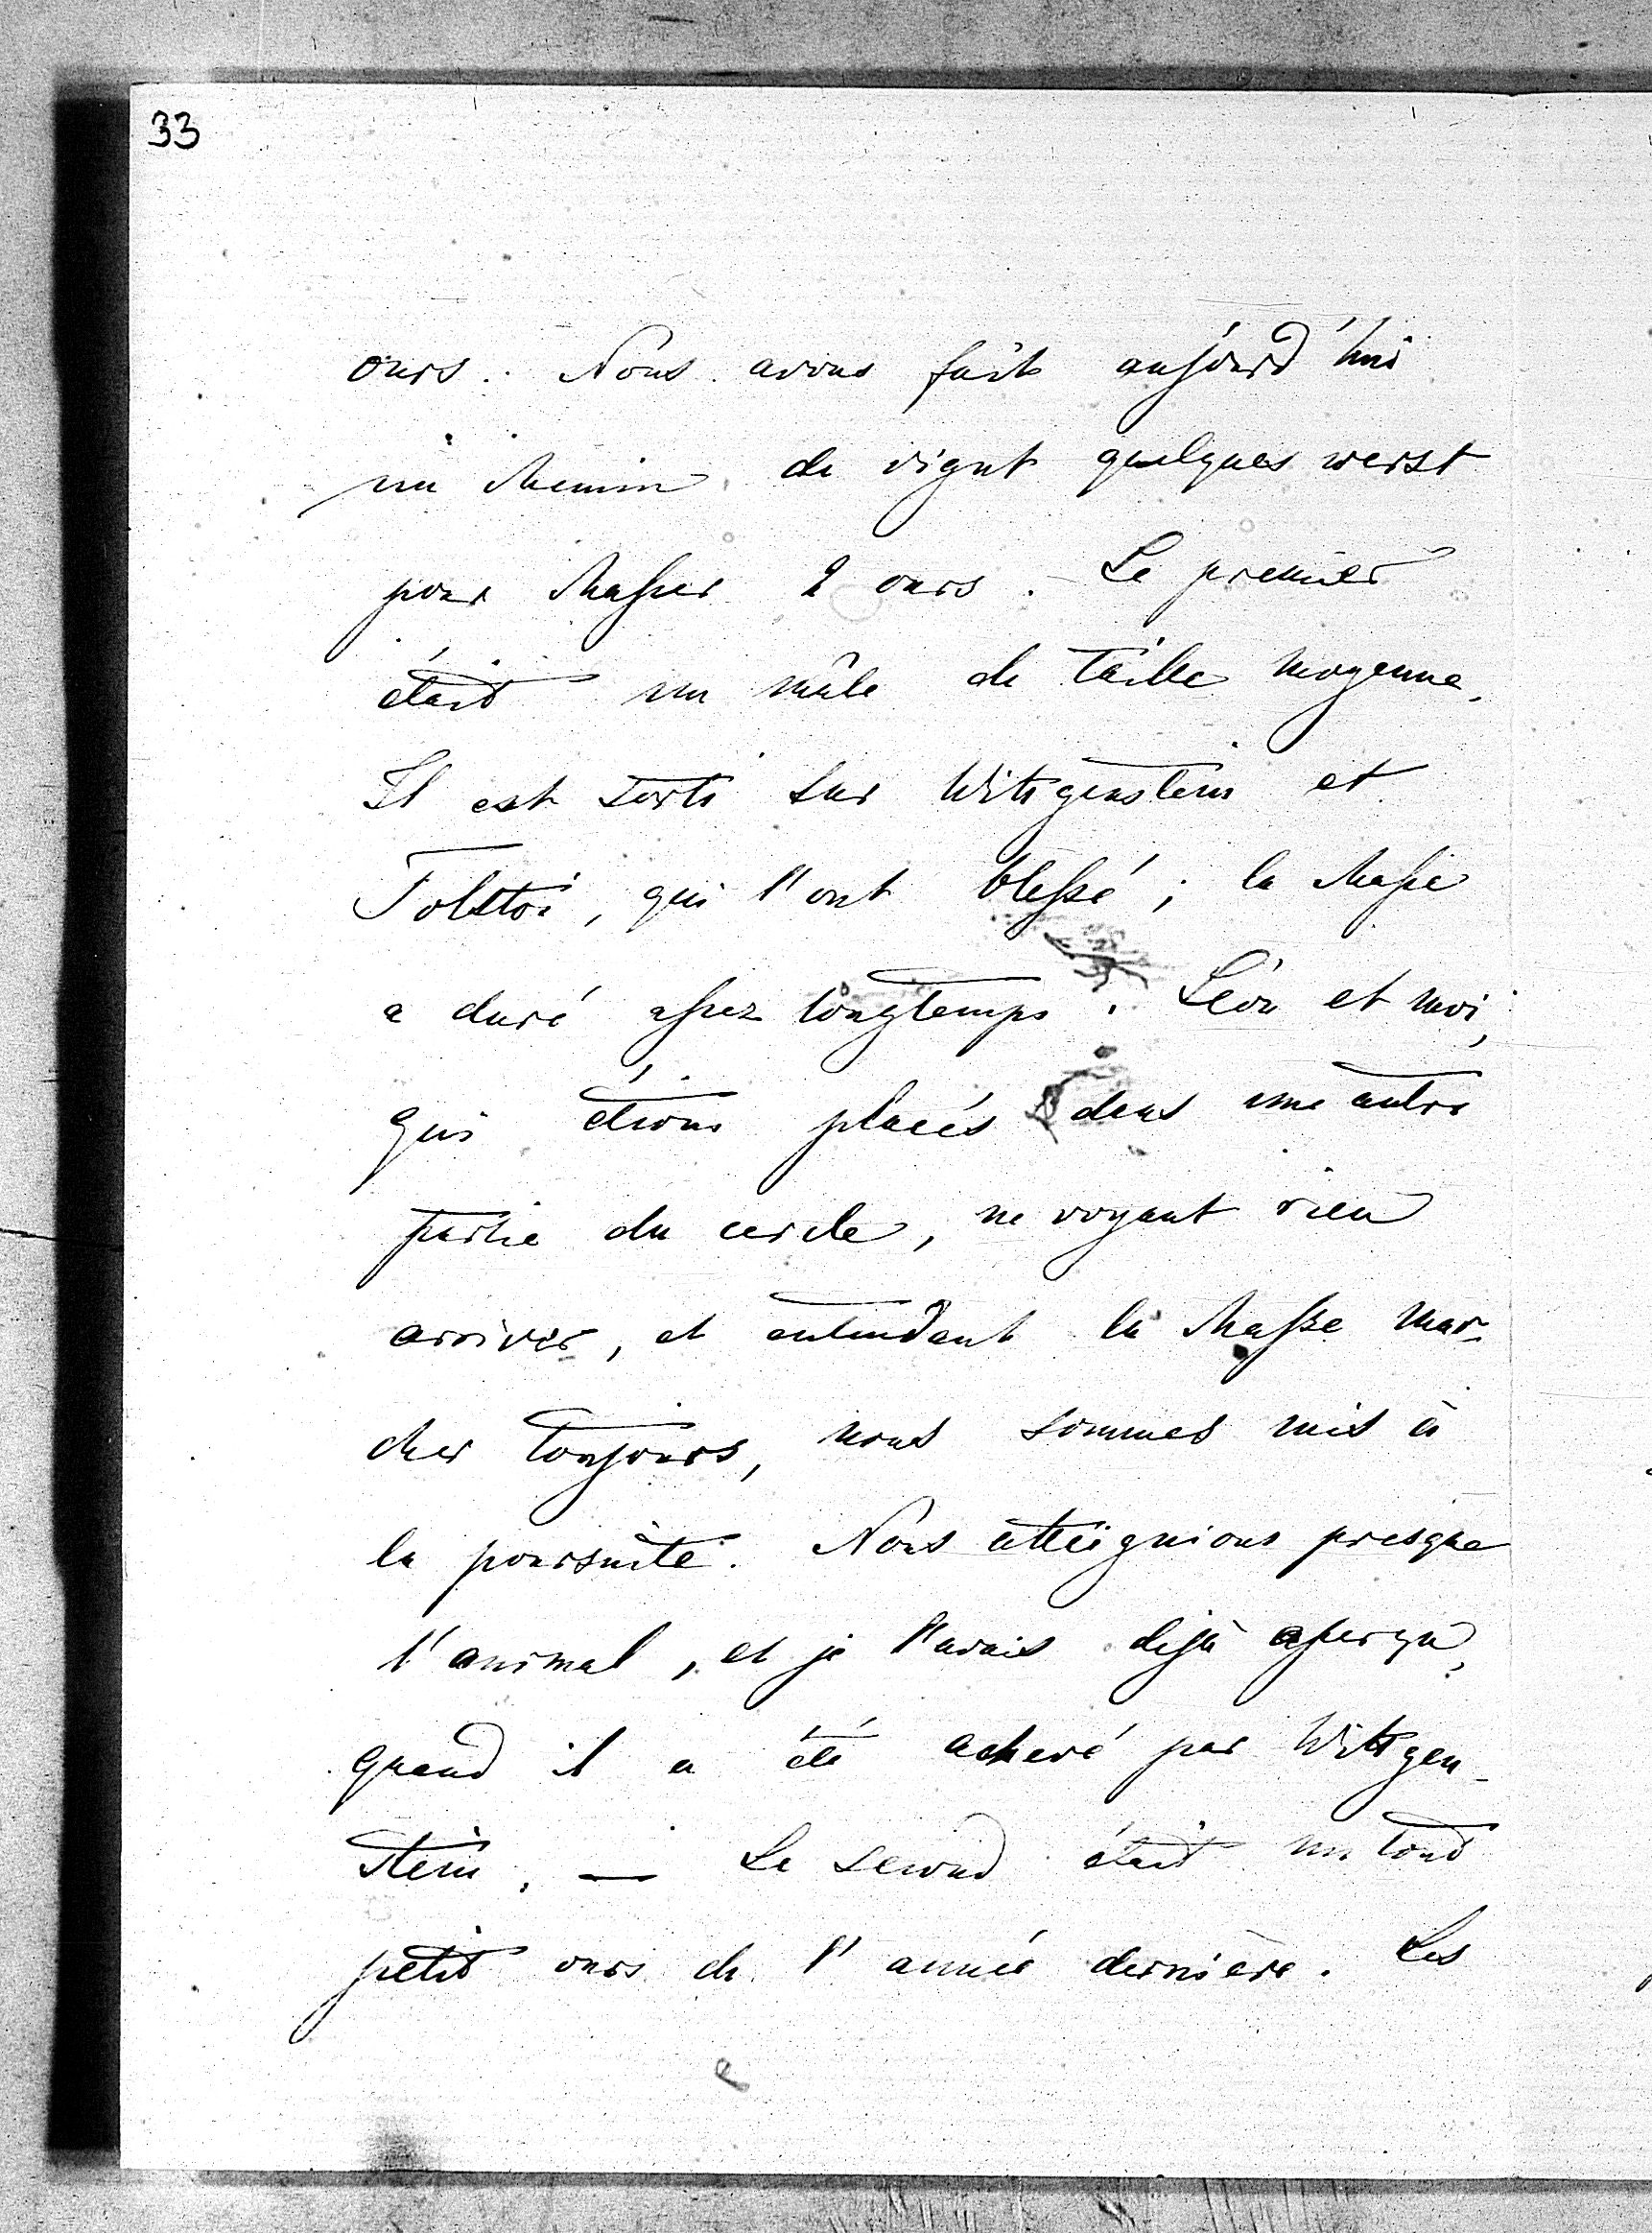 33
ours. Nous avons fait aujourd'hui
un chemin de vignt quelques werst
pour chasser 2 ours. Le premier
était un mâle de taille moyenne.
Il est sorti sur Wittgenstein et
Tolstoï, qui l'ont blessé; la chasse
a duré assez longtemps. Léon et moi,
qui étions placés dans une autre
partie du cercle, ne voyant rien
arriver, et entendant la chasse mar-
cher toujours, nous sommes mis à
la poursuite. Nous atteignions presque
l'animal, et je l'avais déjà aperçu,
quand il a été achevé par Wittgen-
stein. — Le second était un tout
petit ours de l'année dernière. Les